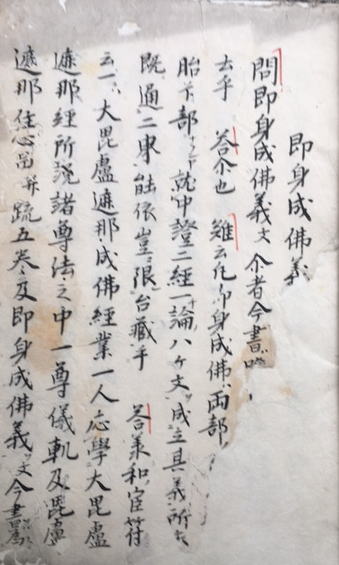 即身成佛義
問即身成佛義文 尒者今書
云乎 答尒也 難云凡即身成佛両部
胎下部 就中證二經一論八ケ文成立其義所
既通二束能依豈限台藏乎 答義和官苻
云一大毘盧遮那成佛經業一人 應學大毘盧
遮那經所說諸尊法之中一尊儀軌及毘盧
遮那住心畵并疏五卷及即身成佛義文今書